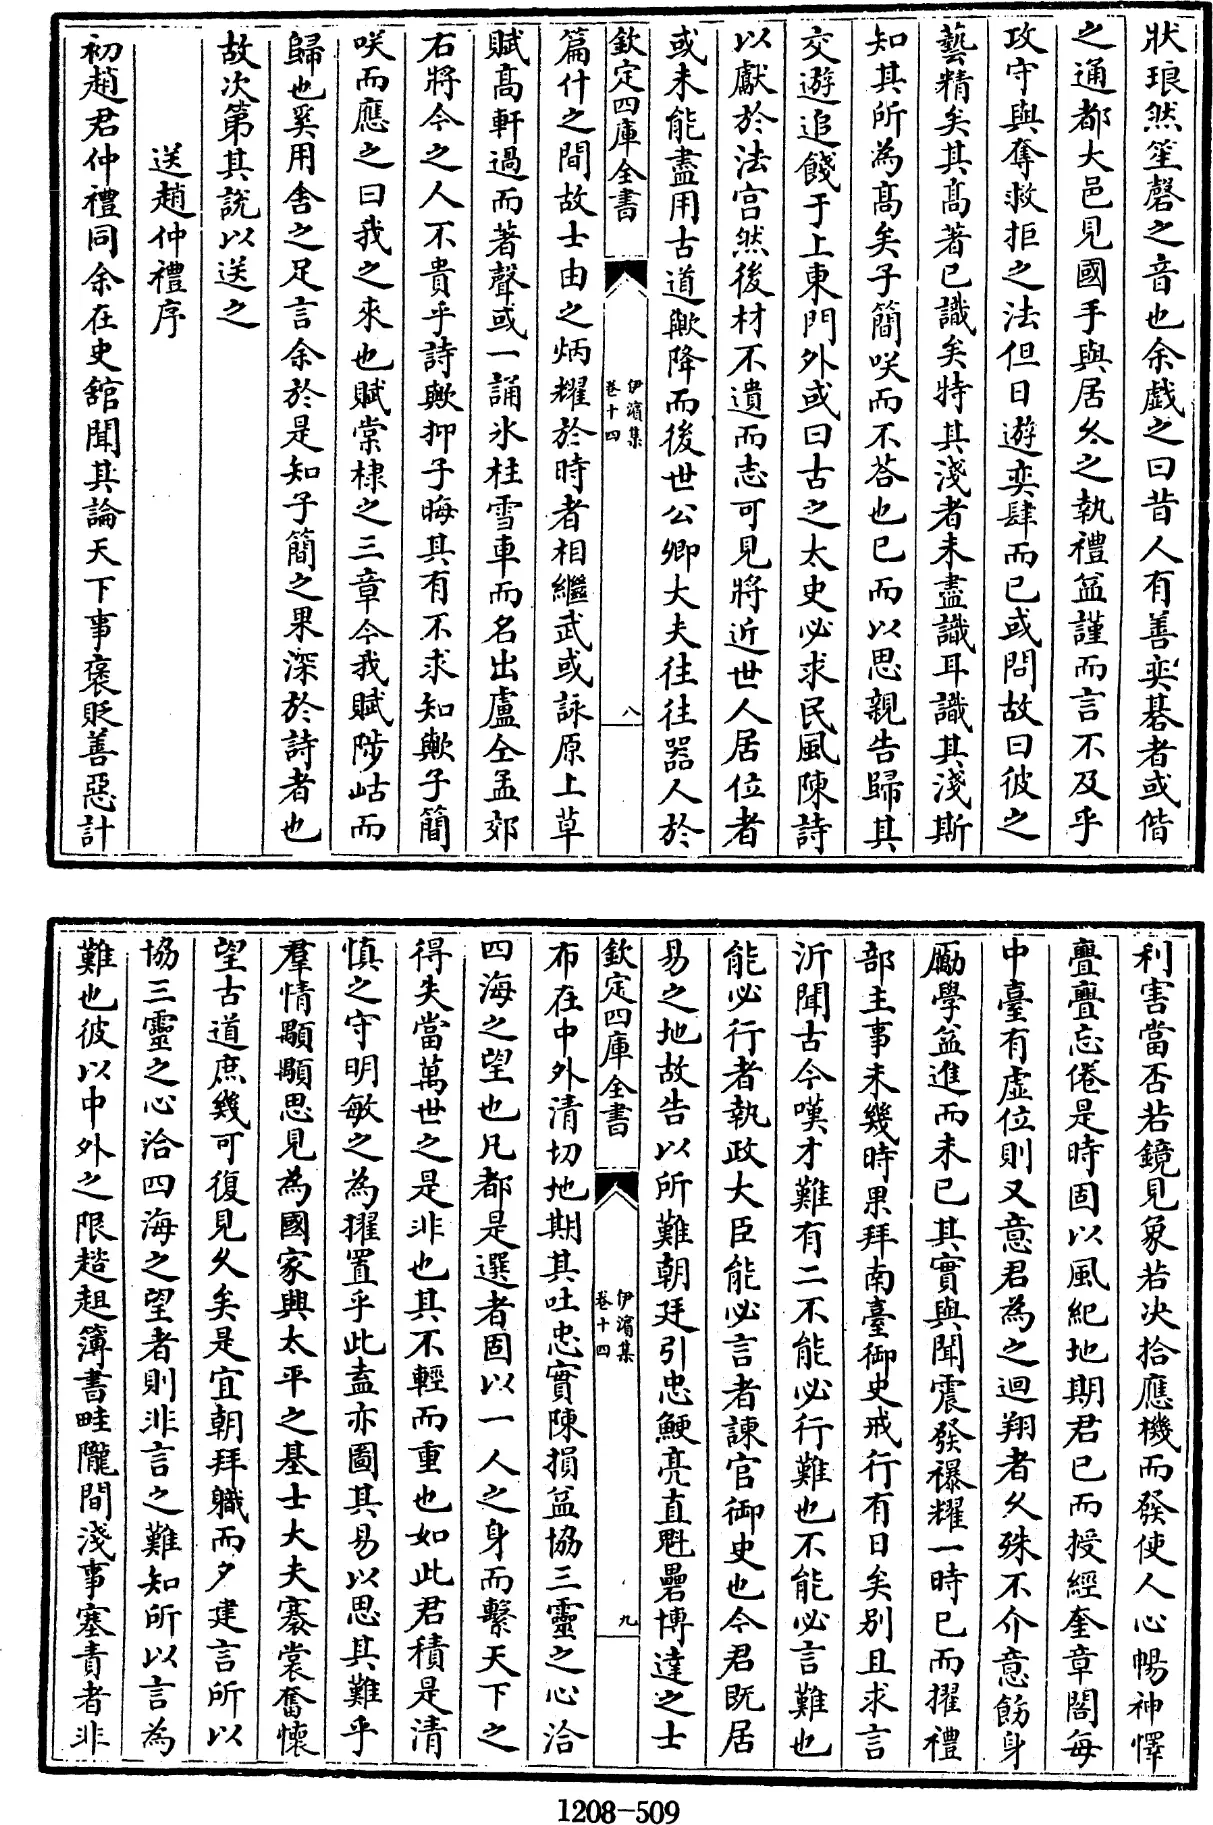 狀琅然笙磬之音也余戲之曰昔人有善奕碁者或偕
之通都大邑見國手與居久之執禮益謹而言不及乎
攻守與奪救拒之法但日遊奕肆而已或問故曰彼之
藝精矣其髙著已識矣特其淺者未盡識耳識其淺斯
知其所為髙矣子簡咲而不荅也已而以思親告歸其
交遊追餞于上東門外或曰古之太史必求民風陳詩
以獻於法宫然後材不遺而志可見將近世人居位者
或未能盡用古道歟降而後世公卿大夫往往器人於
欽定四庫全書
伊濱集
卷十四
八
篇什之間故士由之炳耀於時者相繼武或詠原上草
賦髙軒過而著聲或一誦氷柱雪車而名出盧仝孟郊
右將今之人不貴乎詩歟抑子晦其有不求知歟子簡
咲而應之曰我之來也賦棠棣之三章今我賦陟岵而
歸也奚用舍之足言余於是知子簡之果深於詩者也
故次第其說以送之
送趙仲禮序
初趙君仲禮同余在史舘聞其論天下事褒貶善惡計
利害當否若鏡見象若决拾應機而發使人心暢神懌
亹亹忘倦是時固以風紀地期君已而授經奎章閣每
中臺有虚位則又意君為之迴翔者久殊不介意飭身
勵學益進而未已其實與聞震發襮耀一時已而擢禮
部主事未幾時果拜南臺御史戒行有日矣别且求言
沂聞古今嘆才難有二不能必行難也不能必言難也
能必行者執政大臣能必言者諫官御史也今君既居
易之地故告以所難朝廷引忠鯁亮直魁礨博達之士
欽定四庫全書
伊濱集
卷十四
九
布在中外清切地期其吐忠實陳損益協三靈之心洽
四海之望也凡都是選者固以一人之身而繫天下之
得失當萬世之是非也其不輕而重也如此君積是清
慎之守明敏之為擢置乎此盍亦圖其易以思其難乎
羣情顒顒思見為國家興太平之基士大夫褰裳奮懷
望古道庶幾可復見久矣是宜朝拜職而夕建言所以
協三靈之心洽四海之望者則非言之難知所以言為
難也彼以中外之限趑趄簿書畦隴間淺事塞責者非
1208-509